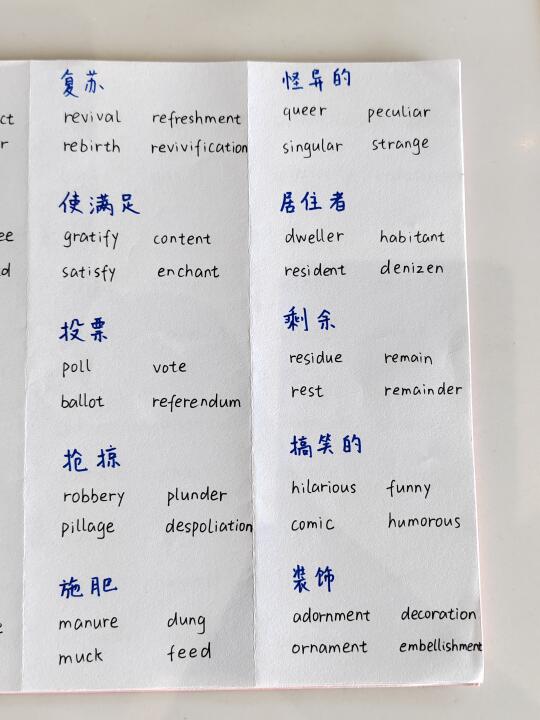 ct
r
ee
d
e
复苏
revival refreshment
rebirth revivification
使满足
gratify content
satisfy enchant
投票
poll vote
ballot referendum
抢掠
robbery plunder
pillage despoliation
施肥
manure dung
muck feed
怪异的
queer peculiar
singular strange
居住者
dweller habitant
resident denizen
剩余
residue remain
rest remainder
搞笑的
hilarious funny
comic humorous
装饰
adornment decoration
ornament embellishment